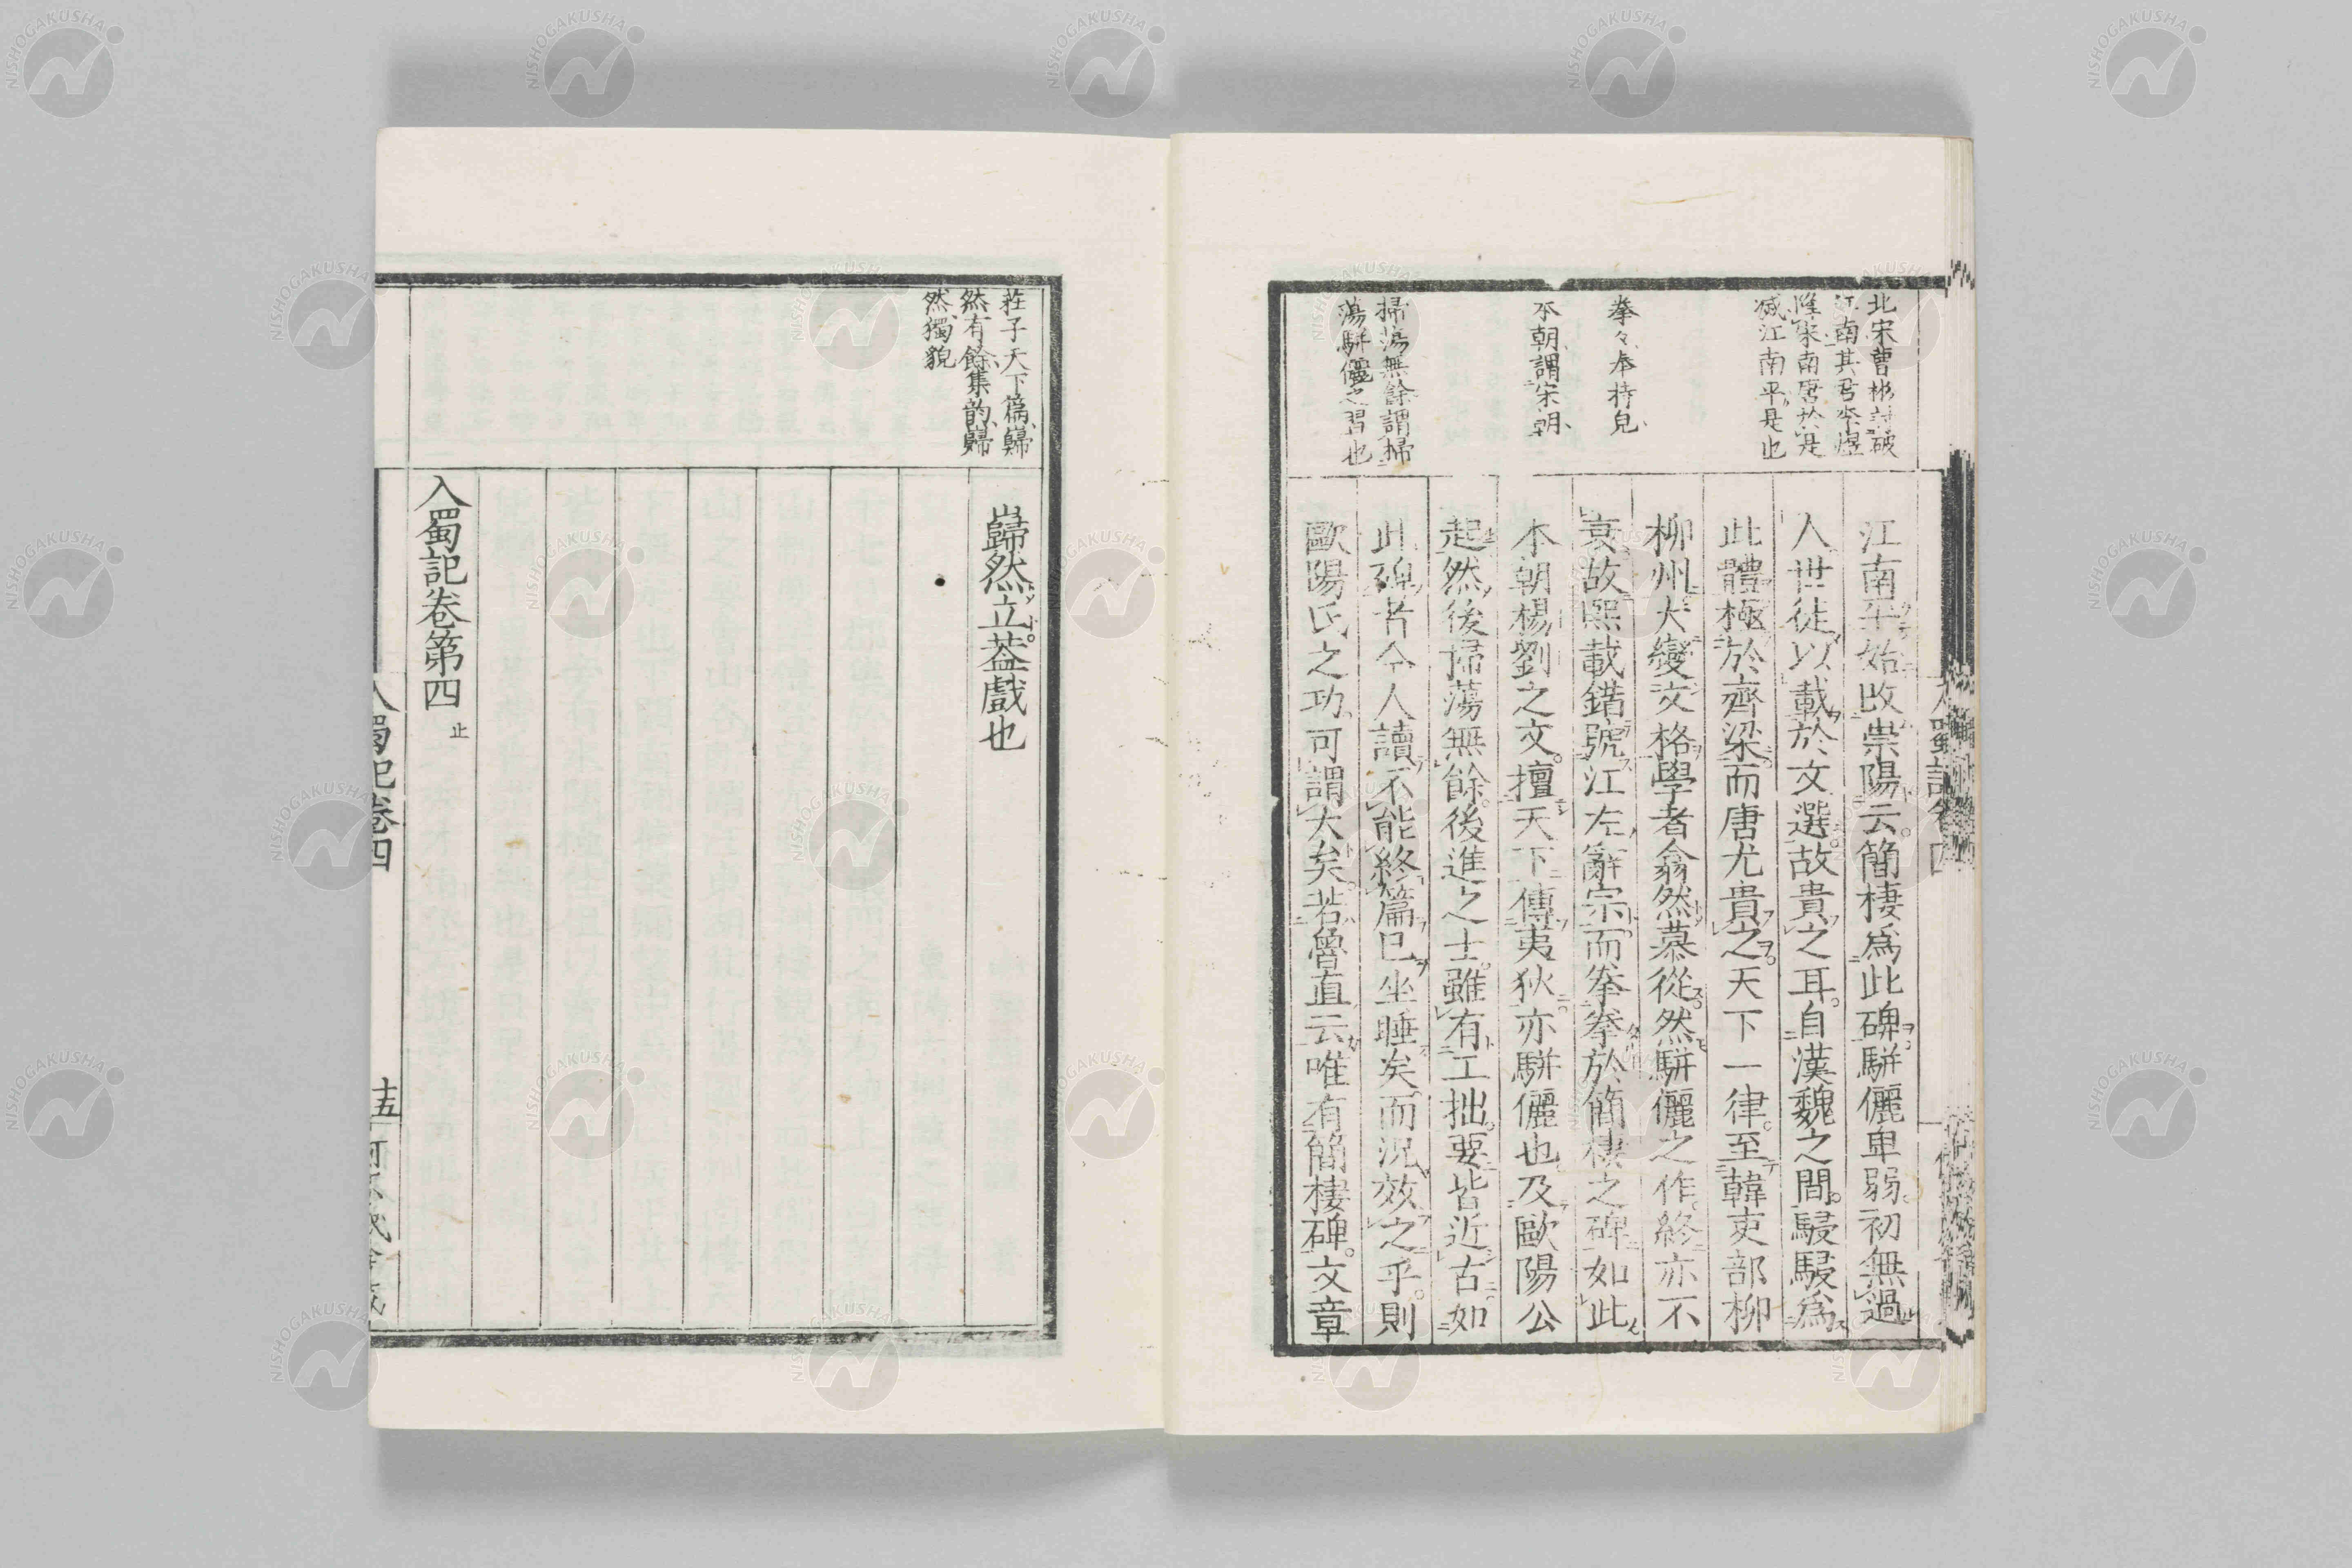 北宋曹彬討破
江南其君李煜
降宋南唐於是
滅江南平是也
拳々奉持皃
本朝謂宋朝
掃蕩無餘謂掃
蕩駢儷之習也
江南平始改崇陽云簡棲爲此碑駢儷卑弱初無過
人世徒以載於文選故貴之耳自漢魏之間駸駸爲
此體極於齊梁而唐尤貴之天下一律至韓吏部柳
柳州大變文格學者翕然慕從然駢儷之作終亦不
衰故熙載錯號江左辭宗而拳拳於簡棲之碑如此
本朝楊劉之文擅天下傳夷狄亦駢儷也及歐陽公
起然後掃蕩無餘後進之士雖有工拙要皆近古如
此碑者今人讀不能終篇已坐睡矣而況效之乎則
歐陽氏之功可謂大矣若魯直云唯有簡棲碑文章
莊子天下篇巋
然有餘集韵巋
然獨貌
巋然立葢戲也
入蜀記卷第四
止
入蜀記卷四
十五
NISHOGAKUSHA